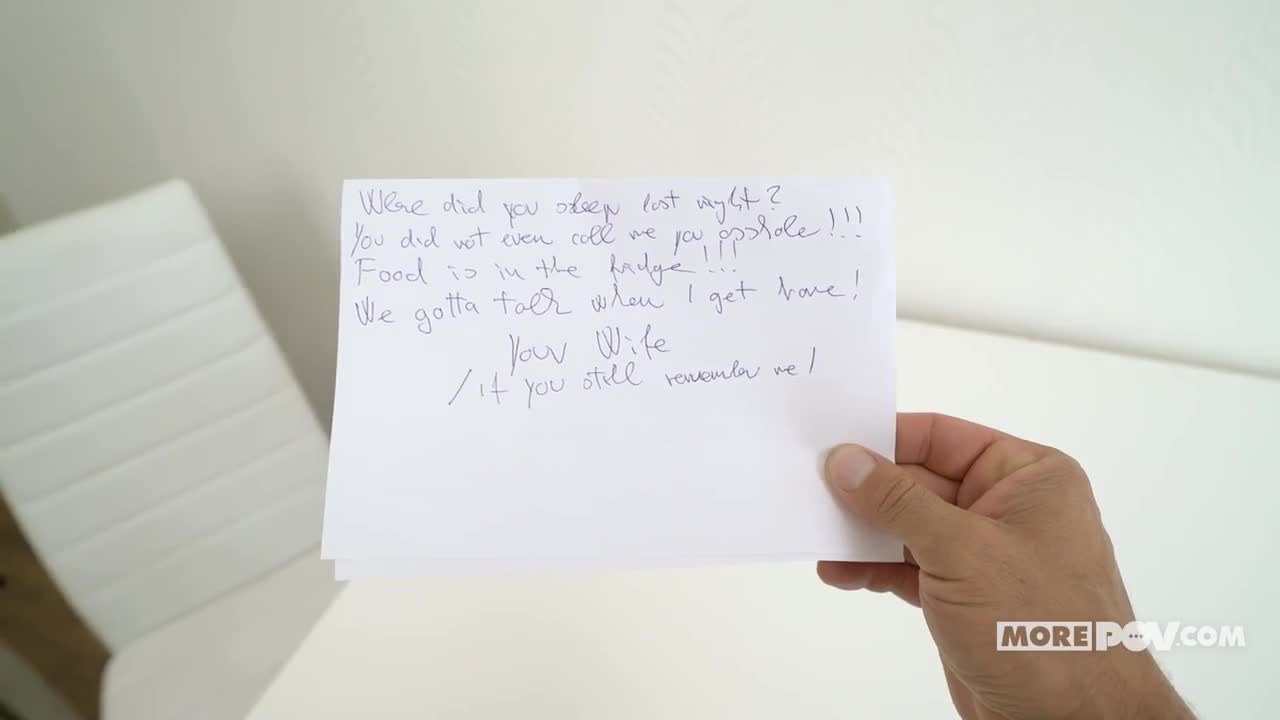 Where did you sleep last night?
You did not even call me you asshole!!!
Food is in the fridge!!!
We gotta talk when I get home!
Your Wife
/if you still remember me/
MOREPOV.COM